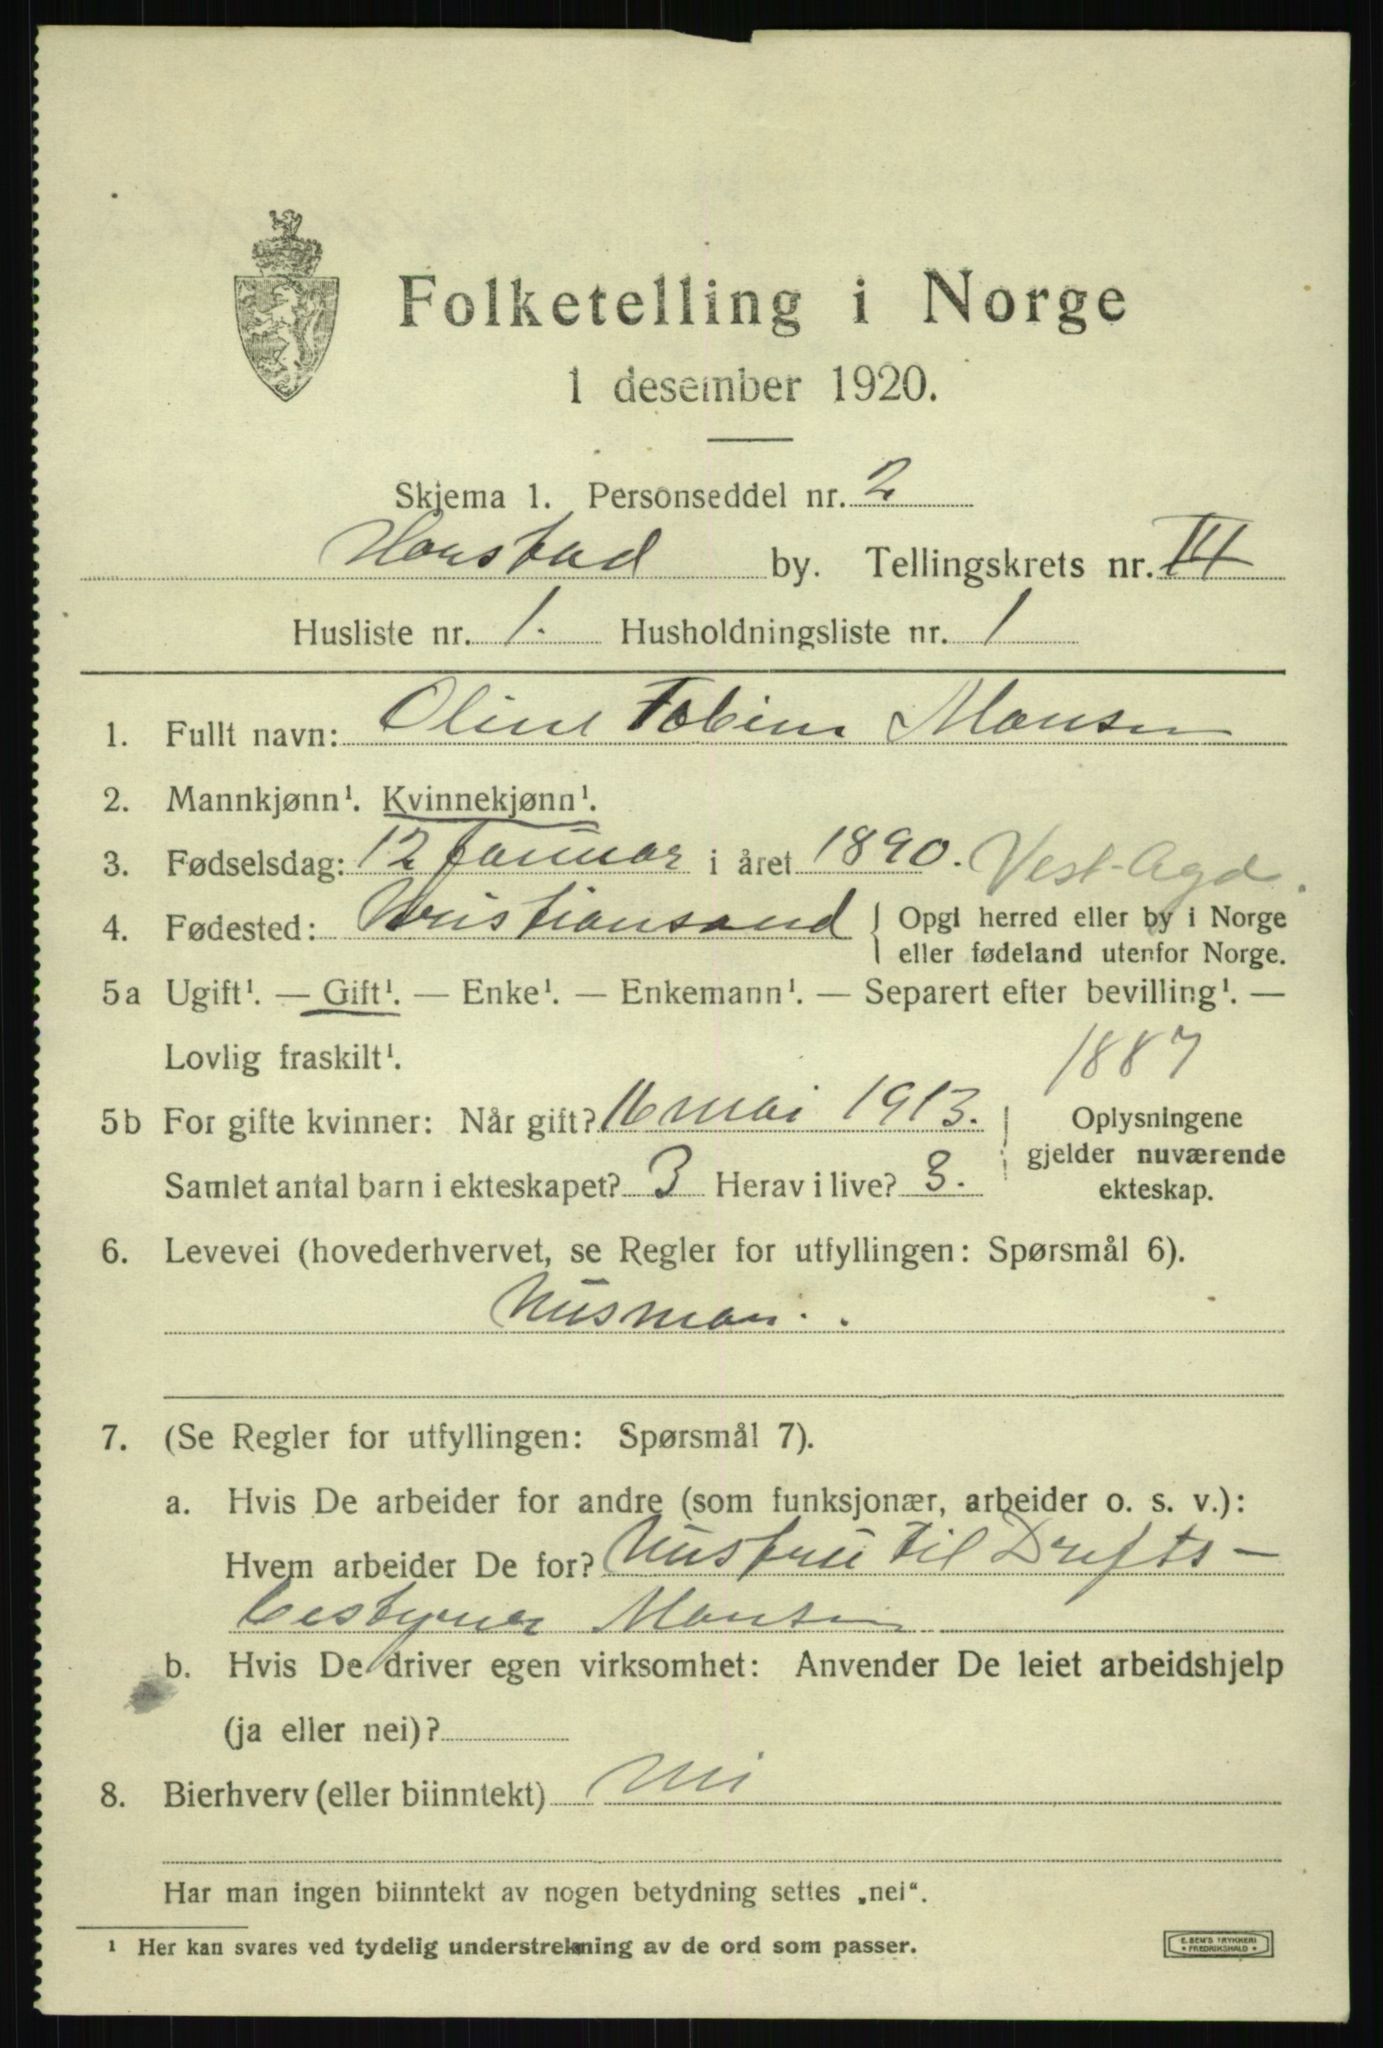 Folketelling i Norge
1 desember 1920.
Skjema 1. Personseddel nr. 2
Harstad by. Tellingskrets nr. III
Husliste nr. 1. Husholdningsliste nr. 1
1. Fullt navn: Oline Tobine Monsen
2. Mannkjønn¹. Kvinnekjønn¹.
3. Fødselsdag: 12 Januar i året 1890. Vest-Agd.
4. Fødested: Kristiansand { Opgi herred eller by i Norge
eller fødeland utenfor Norge.
5a Ugift¹. — Gift¹. — Enke¹. — Enkemann¹. — Separert efter bevilling¹. —
Lovlig fraskilt¹.
1887
5b For gifte kvinner: Når gift? 16 mai 1913. Oplysningene
gjelder nuværende
Samlet antal barn i ekteskapet? 3 Herav i live? 3. ekteskap.
6. Levevei (hovederhvervet, se Regler for utfyllingen: Spørsmål 6).
Husmor.
7. (Se Regler for utfyllingen: Spørsmål 7).
a. Hvis De arbeider for andre (som funksjonær, arbeider o. s. v.):
Hvem arbeider De for? Hustru til Drifts-
bestyrer Monsen
b. Hvis De driver egen virksomhet: Anvender De leiet arbeidshjelp
(ja eller nei)?
8. Bierhverv (eller biinntekt) Nei
Har man ingen biinntekt av nogen betydning settes „nei“.
¹ Her kan svares ved tydelig understrekning av de ord som passer.
E. SEM'S TRYKKERI
• FREDRIKSHALD •